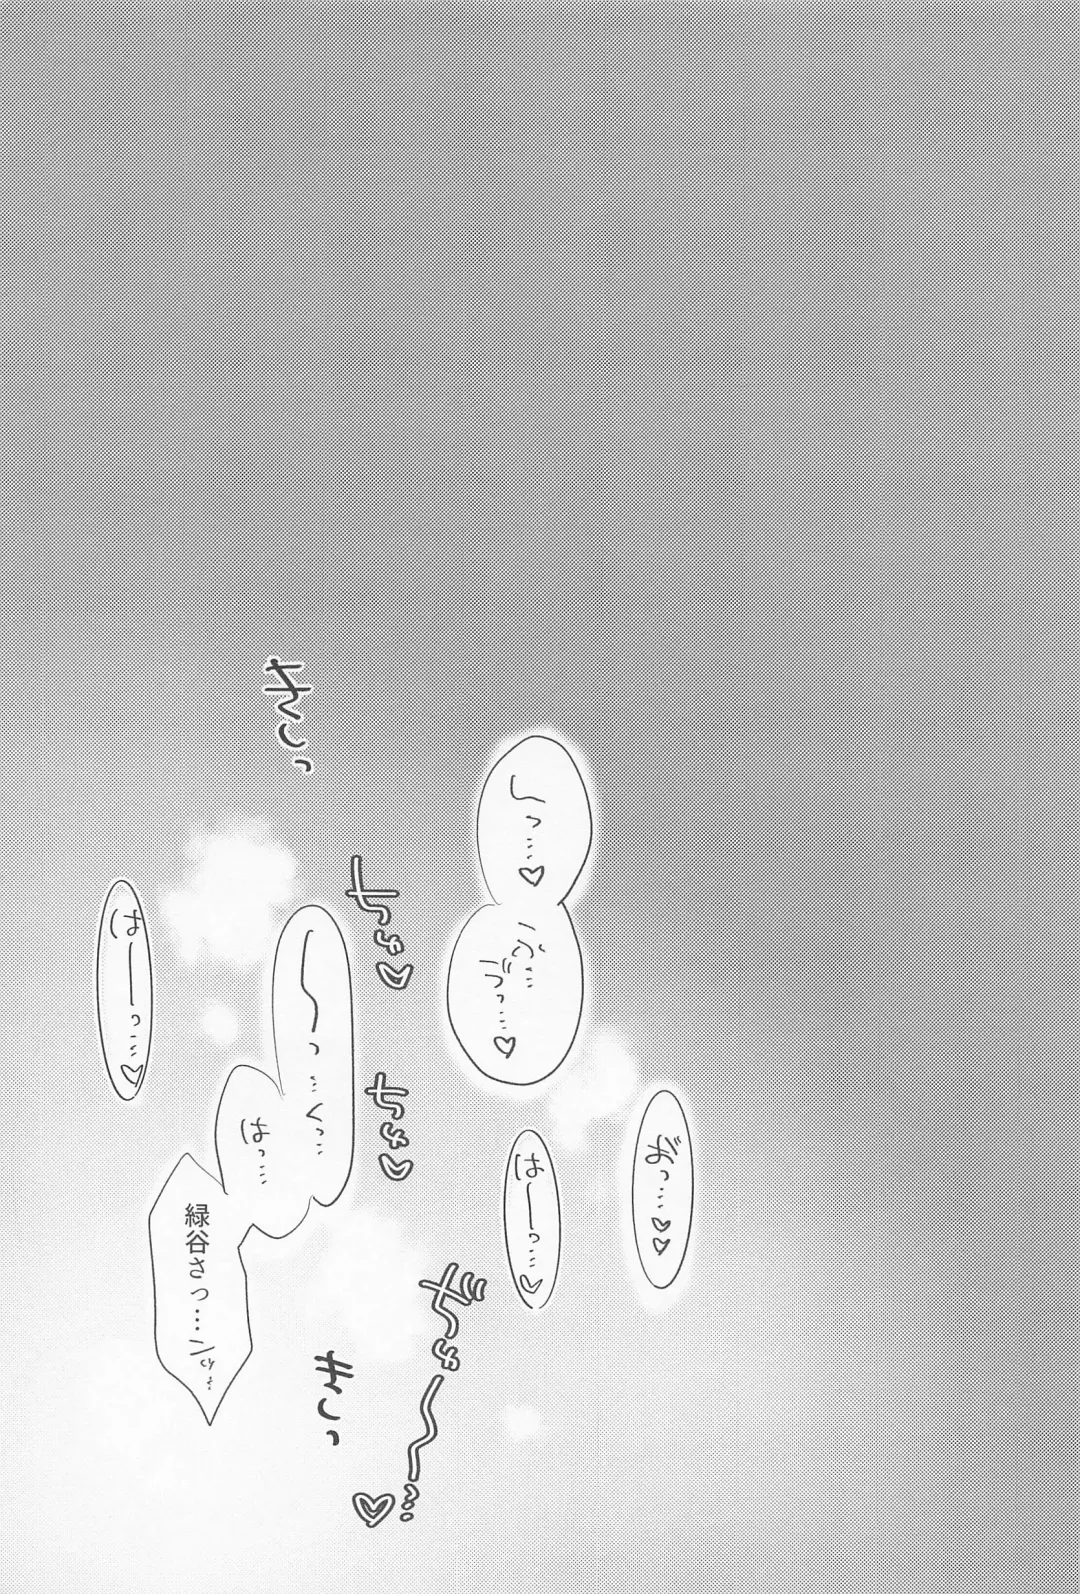 きしっ
〜っ…♡
ンぷ…
づっ…♡
ちゅ♡
〜っ…くっ…
はっ…
緑谷さっ…ン
はーっ…♡
お゛っ…♡♡
はーっ…♡
ちゅ♡
ぢゅ〜…♡
きしっ